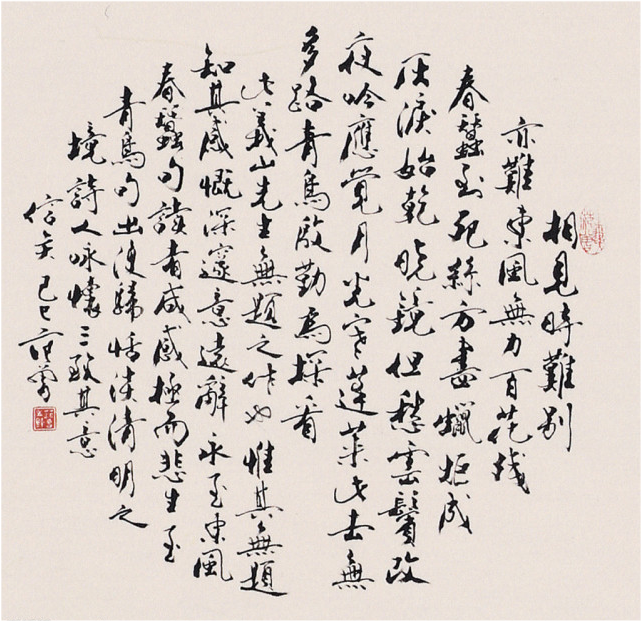 相見時難別
亦難東風無力百花残
春蠶到死絲方盡蠟炬成
灰淚始乾曉鏡但愁雲鬢改
夜吟應覺月光寒蓬萊此去無
多路青鳥殷勤為探看
此義山先生無題之作也惟其無題
知其感慨深邃意遠辭永至東風
春蠶句讀者咸感極而悲生至
青鳥句出便歸恬淡清明之
境詩人咏懷三致其意
信矣己巳范曾